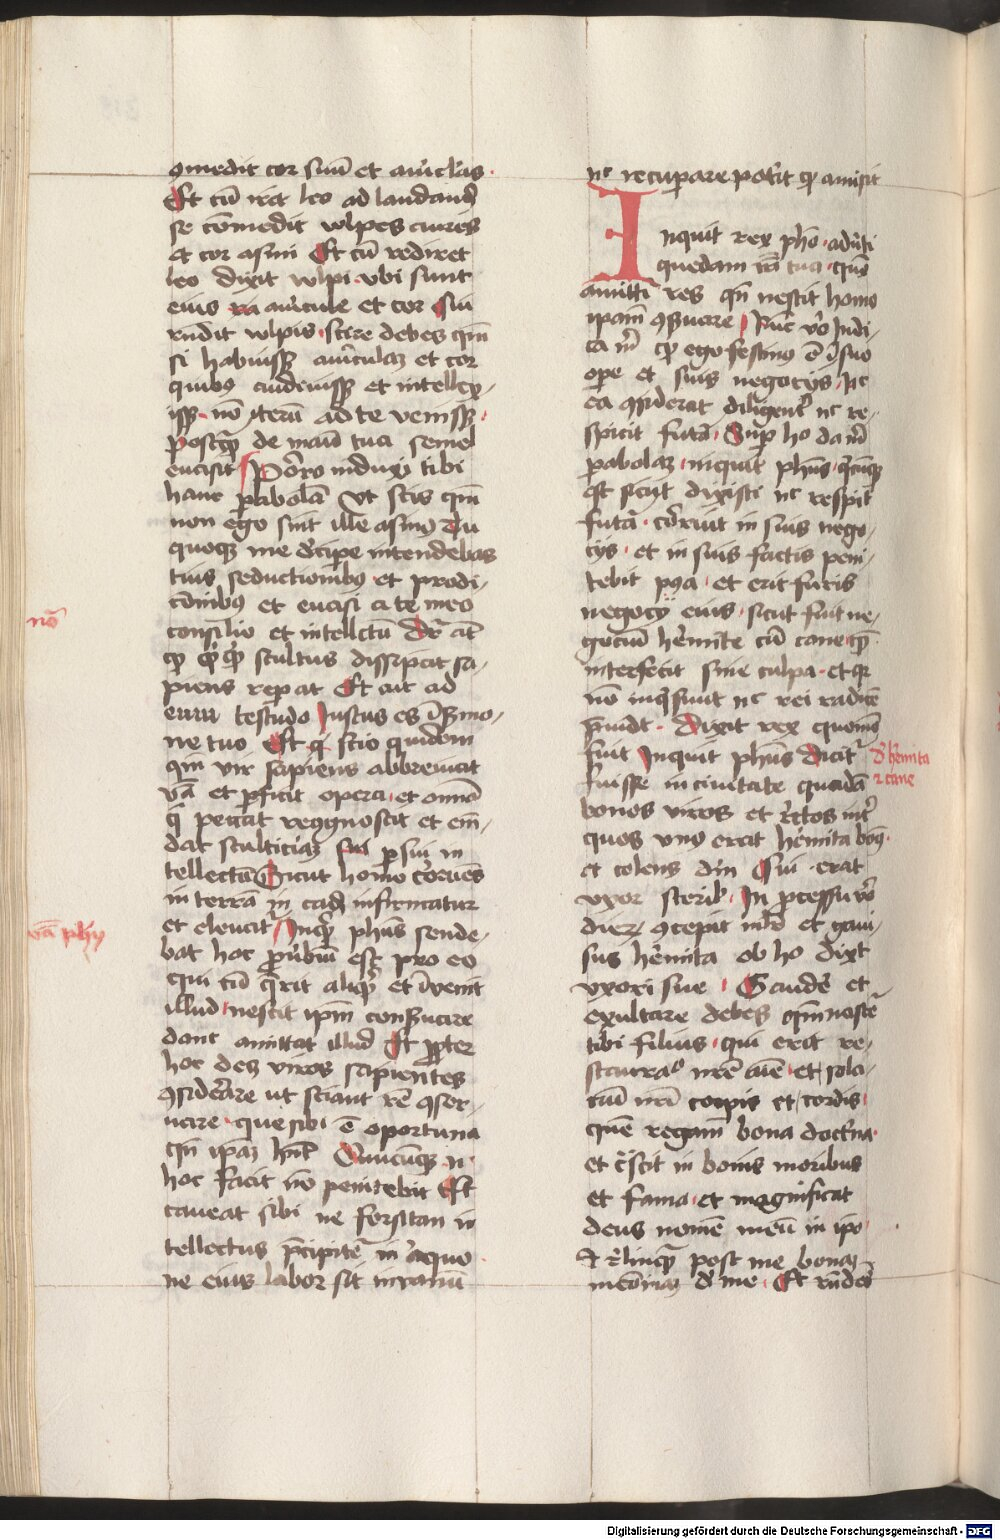 comedit cor suū et auricl'as.
Et cū iret leo ad lauandū
se comedit wlpes aures
et cor asini Et cū rediret
leo dixit wlpi vbi sunt
eius auricule et cor Cui
rn̄dit wlpis scire debes qm̄
si habuisset auriculas et cor
quibus audiuisset et intellex-
isset nō iterū ad te venisset
postq̄ de manu tua semel
euasit Porro induxi tibi
hanc parabolā vt scis qm̄
non ego sim ille asinus Tu
quoque me decipe intendebas
tuis seductionibus et prodi-
cōnibus et euasi a te meo
consilio et intellectu Dr̄ at̄
q̄ stultus dissipat sa-
piens reparat Et ait ad
eum testudo Justus es ī sermo-
ne tuo Et scio quidem
qm̄ vir sapiens abbreuiat
v̄ba et perficit opera et omnia
q̄ peccat recognoscit et em̄-
dat stulticiam per sui in
tellectū Sicut homo corruēs
in terrā in eadē infirmatur
et eleuat' Inquit phūs sende-
bat hoc prouerbiū est pro eo
qui cū querit aliquid et inuenit
illud nescit ipm̄ conseruare
donec amittat illud Et propter
hoc decet viros sapientes
considerare ut sciant rē conser-
uare que sibi ē oportuna
qn̄ ipam hn̄t Quicunque n̄
hoc facit nō penitebit Et
caueat sibi ne forsitan in
tellectus precipitet in aquo
ne eius labor sit in vanū
nō
v̄ba phi
nec recuperare poterit qd amisit
Inquit rex pho aduerti
quedam v̄ba tua quō
amitti res qn̄ nescit homo
ipam conseruare Nūc v̄o Indi-
ca m̄ qd ego festinus ē ī suo
ope et suis negocijs nec
ea considerat diligenter nec re-
spicit futa Super hoc da m̄
parabolam inquit phus quicunque
est sicut dixisti nec respicit
futa corruit in suis nego-
cijs et in suis factis peni-
tebit postea et erit futis
negocij eius sicut fuit ne-
gociū hermite cū cane quem
interfecit sine culpa et quia
nō inquisiuit nec rei radicē
Dixit rex quomodo
fuit Inquit phus dicitur
fuisse in ciuitate quadā
bonos viros et rectos inter
quos vnus erat hermita bonus
et colens dm̄ Cui erat
vxor sterilis In processu v̄o
dierum concepit mulier et gaui-
sus hermita ob hoc dixit
vxori sue Gaudere et
exultare debes qm̄ nascet
tibi filius qui erit re-
stauratio nr̄e aīe et sola-
ciū nr̄i corpis et cordis
quē regam bona doctrina
et crescit in bonis moribus
et fama et magnificat
deus nomē meū in ipo
et relinquam post me bonam
memoriam de me Et rn̄des
de hermita
et cane
Digitalisierung gefördert durch die Deutsche Forschungsgemeinschaft - DFG